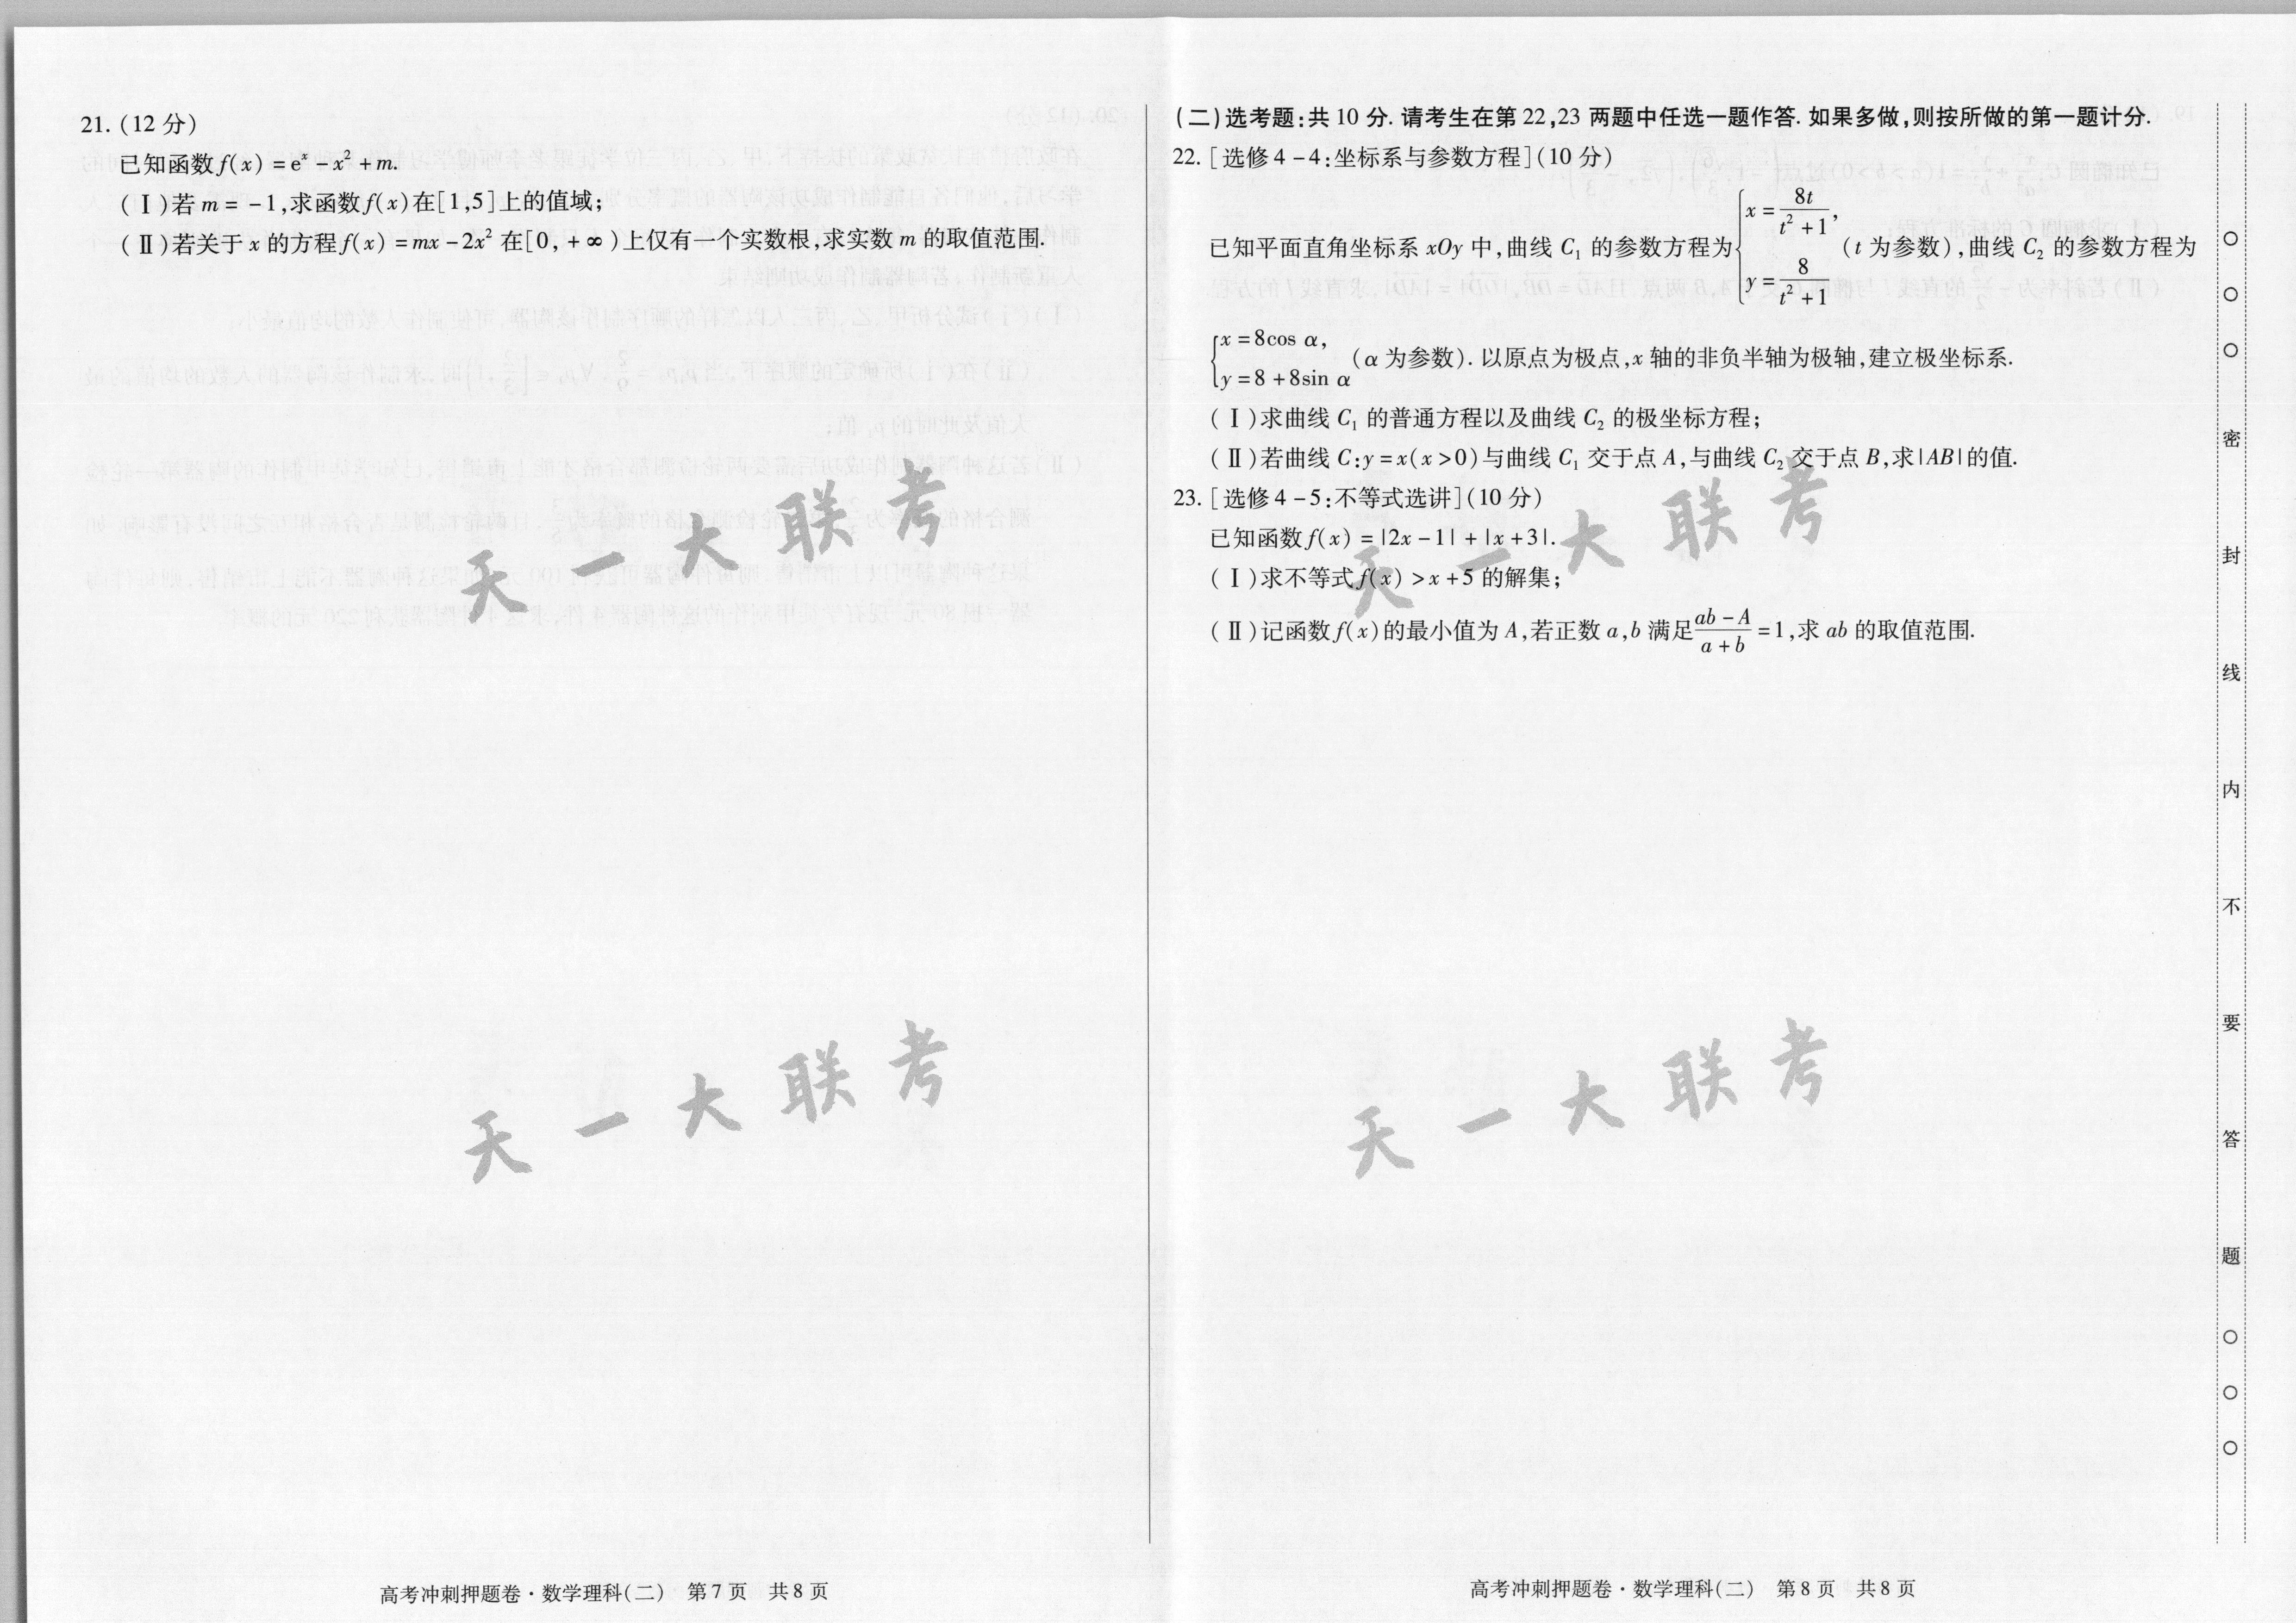 21. (12 分)
已知函数 f(x) = eˣ - x² + m.
(Ⅰ)若 m = -1,求函数 f(x) 在[1,5]上的值域;
(Ⅱ)若关于 x 的方程 f(x) = mx - 2x² 在[0, +∞)上仅有一个实数根,求实数 m 的取值范围.
天一大联考
天一大联考
高考冲刺押题卷·数学理科(二) 第 7 页 共 8 页
(二)选考题:共 10 分. 请考生在第 22,23 两题中任选一题作答. 如果多做,则按所做的第一题计分.
22. [选修 4-4:坐标系与参数方程](10 分)
已知平面直角坐标系 xOy 中,曲线 C₁ 的参数方程为 { x = 8t/(t² + 1), y = 8/(t² + 1) (t 为参数),曲线 C₂ 的参数方程为
{ x = 8cos α, y = 8 + 8sin α (α 为参数). 以原点为极点,x 轴的非负半轴为极轴,建立极坐标系.
(Ⅰ)求曲线 C₁ 的普通方程以及曲线 C₂ 的极坐标方程;
(Ⅱ)若曲线 C:y = x(x > 0)与曲线 C₁ 交于点 A,与曲线 C₂ 交于点 B,求|AB|的值.
23. [选修 4-5:不等式选讲](10 分)
已知函数 f(x) = |2x - 1| + |x + 3|.
(Ⅰ)求不等式 f(x) > x + 5 的解集;
(Ⅱ)记函数 f(x) 的最小值为 A,若正数 a,b 满足 (ab - A)/(a + b) = 1,求 ab 的取值范围.
天一大联考
天一大联考
高考冲刺押题卷·数学理科(二) 第 8 页 共 8 页
○ ○ ○ 密 封 线 内 不 要 答 题 ○ ○ ○